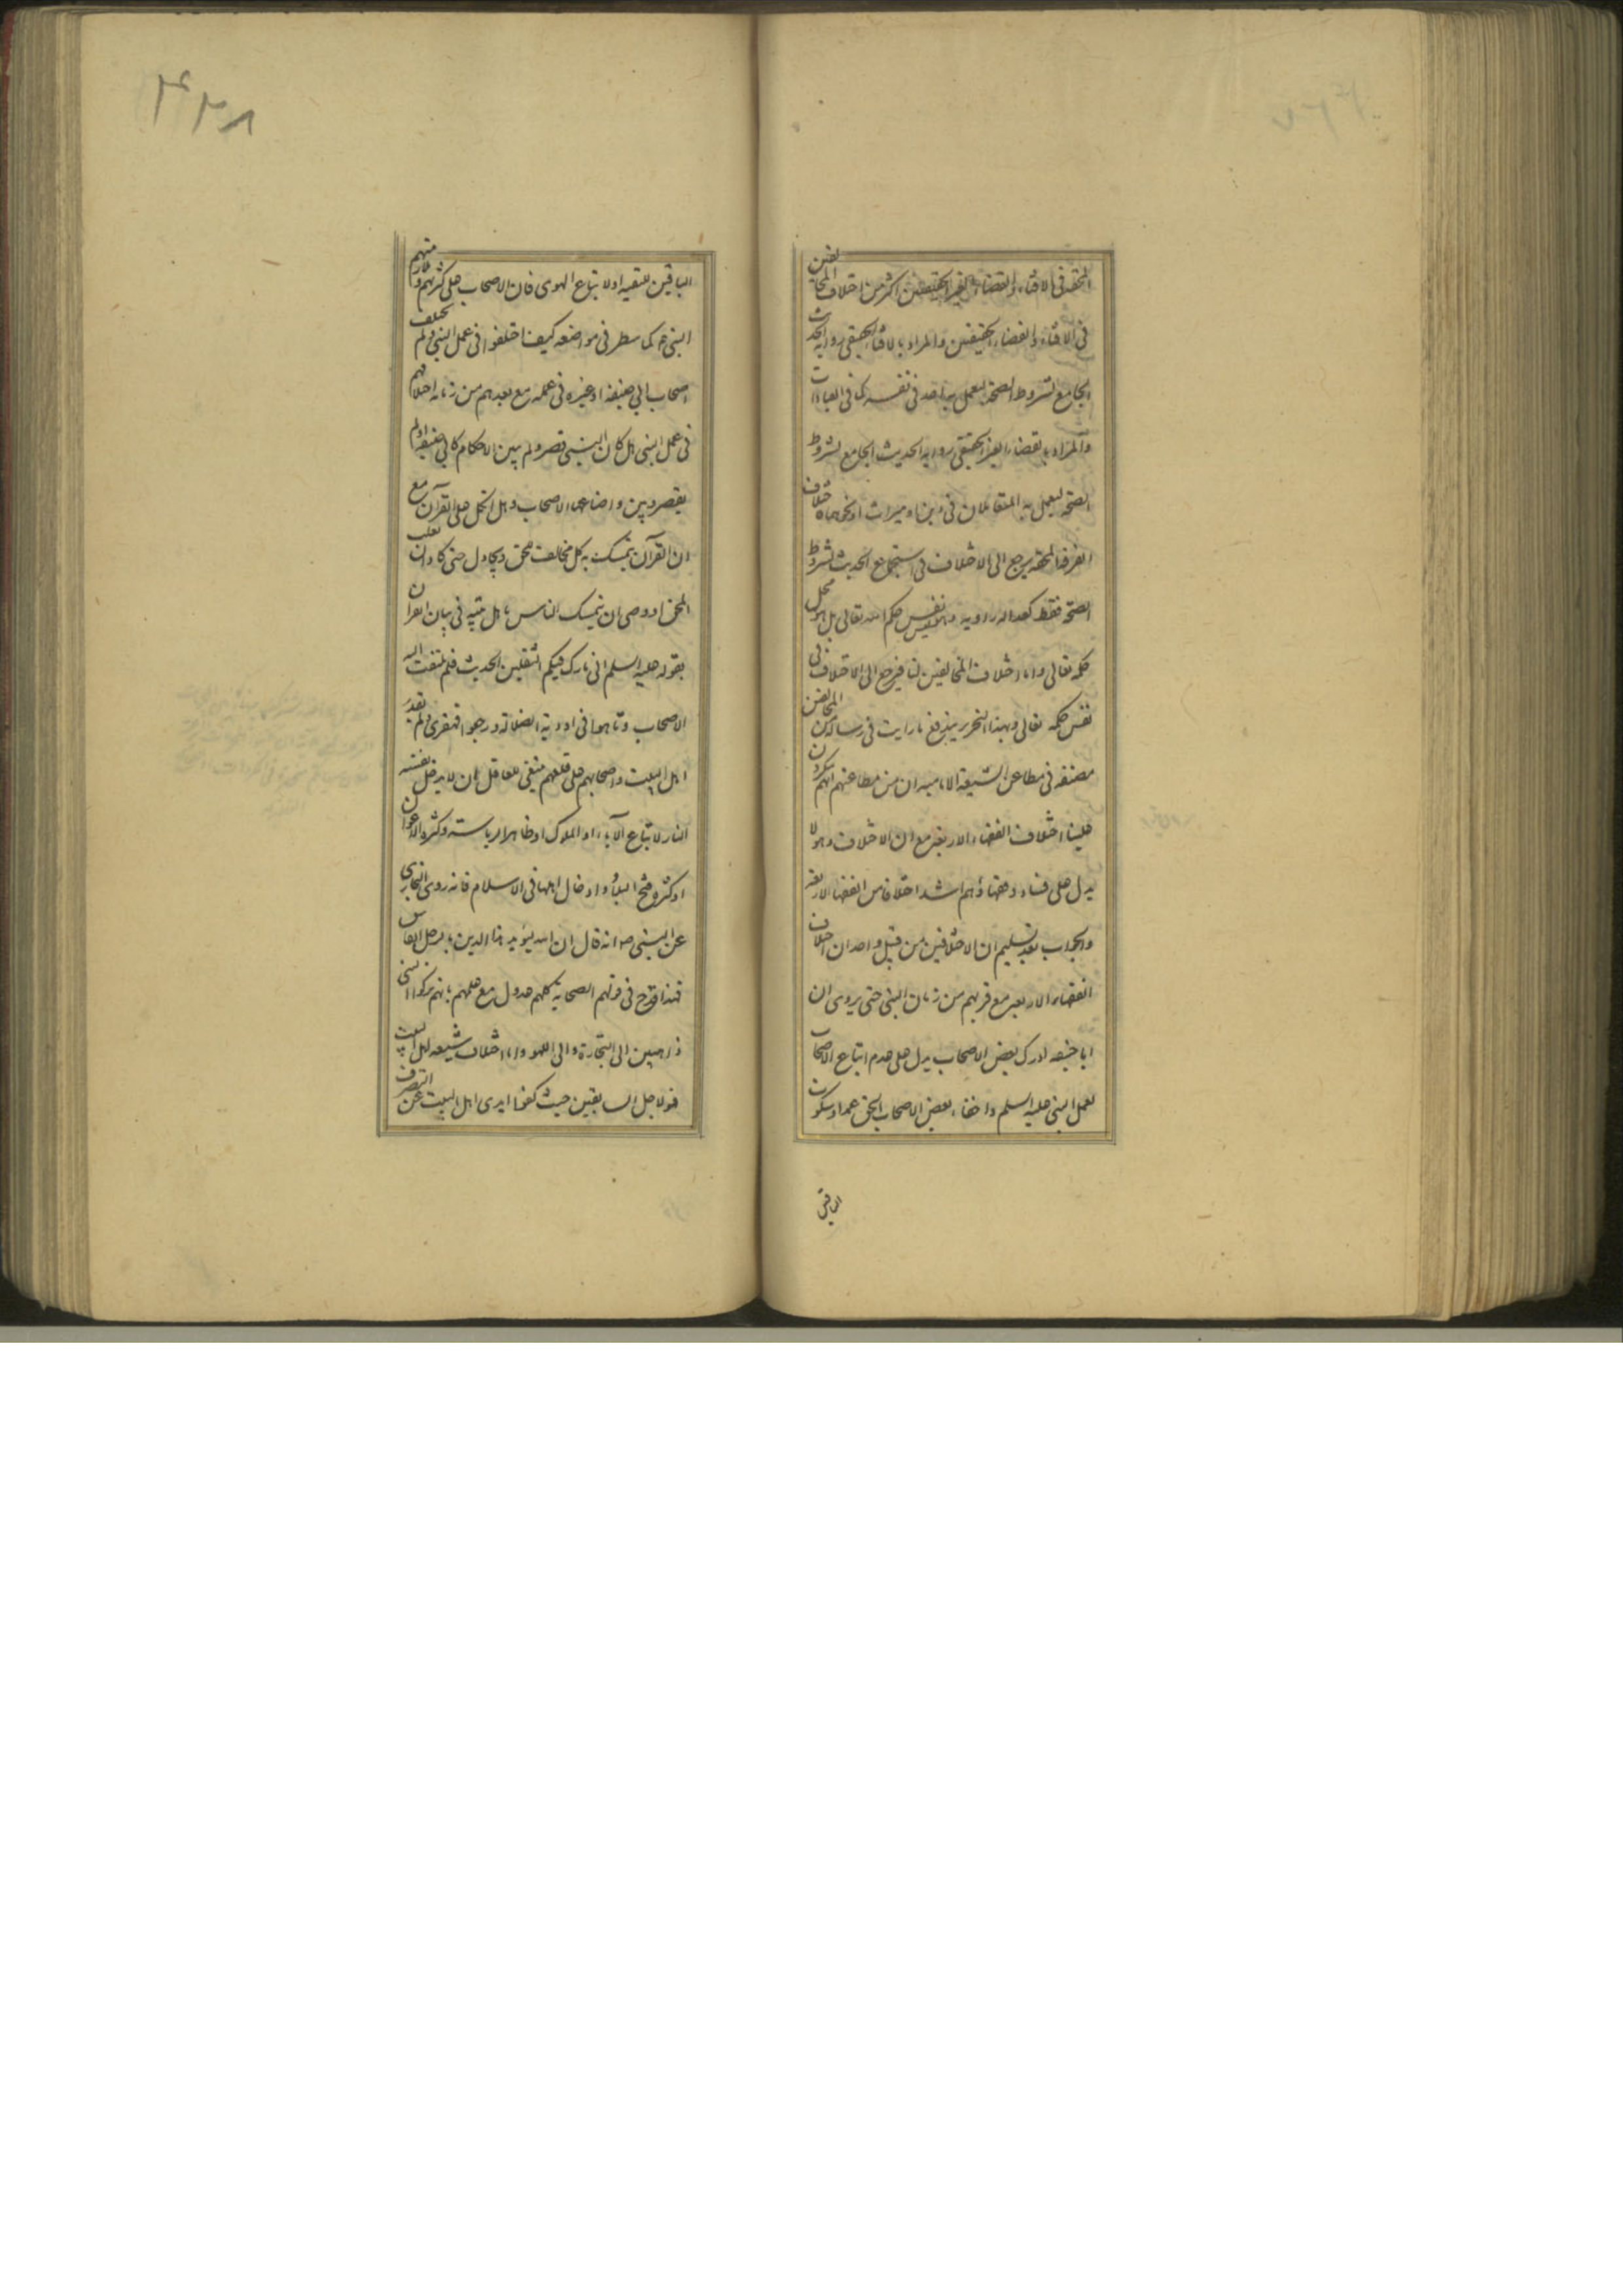 المحقة فى الافتاء والقضاء الغير الحقيقيين اكثر من اختلاف المخالفين
فى الافتاء والقضاء الحقيقيين والمراد بالافتاء الحقيقى رواية الحديث
الجامع لشروط الصحة ليعمل به احد فى نفسه كما فى العبادات
والمراد بالقضاء الغير الحقيقى رواية الحديث الجامع لشروط
الصحة ليعمل به المتقابلان فى دين او ميراث او نحوهما
الفرقة المحقة يرجع الى الاختلاف فى استجماع الحديث لشروط
الصحة فقط كعدالة راويه نفس حكم الله تعالى بل هو
حكمه تعالى واما اختلاف المخالفين لنا فيرجع الى الاختلاف فى
نفس حكمه تعالى وبهذا التحرير يندفع ما رايت فى رسالة من المخالفين
مصنفه فى مطاعن الشيعة الامامية ان من مطاعنهم انهم ينكرون
علينا اختلاف القضاء الاربعة مع ان الاختلاف وهو لا
يدل على فساد وقضاؤهم اشد اختلافا من القضاء الاربعة
والجواب بعد تسليم ان الاختلافين من قبيل واحد ان اختلاف
القضاء الاربعة مع قربهم من زمان النبى حتى يروى ان
ابا حنيفة ادرك بعض الاصحاب يدل على عدم اتباع الاصحاب
لعمل النبى عليه السلم واخفاء بعض الاصحاب الحق عمدا وسكوت
الباقين
۴۳۸
الباقين للتقية او لاتباع الهوى فان الاصحاب على كثرتهم منهم
النبى ص كما سطر فى مواضعه كيف اختلفوا فى عمل النبى ولم يختلف
اصحاب ابى حنيفة او غيره فى عمله مع بعدهم من زمانه اختلافهم
فى عمل النبى هل كان النبى قصر ولم يبين الاحكام كابى حنيفة او لم
يقصر وبين واضاعها الاصحاب وهل اتكل على القرآن مع
ان القرآن يتمسك به كل مخالف محق ويجادل حتى كاد ان يغلب
المحق او وصى ان يتمسك الناس باهل بيته فى بيان القران
بقوله عليه السلم انى تارك فيكم الثقلين الحديث فلم يلتفت اليه
الاصحاب وتاهوا فى اودية الضلالة ورجعوا قهقرى ولم يقدر
اهل البيت واصحابهم على قلعهم فينبغى للعاقل ان لا يدخل نفسه
النار لاتباع الآباء او الملوك او ظاهر الرياسة وكثرة الاعوان
او كثرة فتح البلاد وادخال اهلها فى الاسلام فانه روى البخارى
عن النبى ص انه قال ان الله ليؤيد هذا الدين بالرجل الفاسق
فهذا قدح فى قولهم الصحابة كلهم عدول مع علمهم بانهم تركوا النبى
ذاهبين الى التجارة والى اللهو واما اختلاف شيعة اهل البيت
فهو لاجل السابقين حيث كفوا ايدى اهل البيت عن التصرف